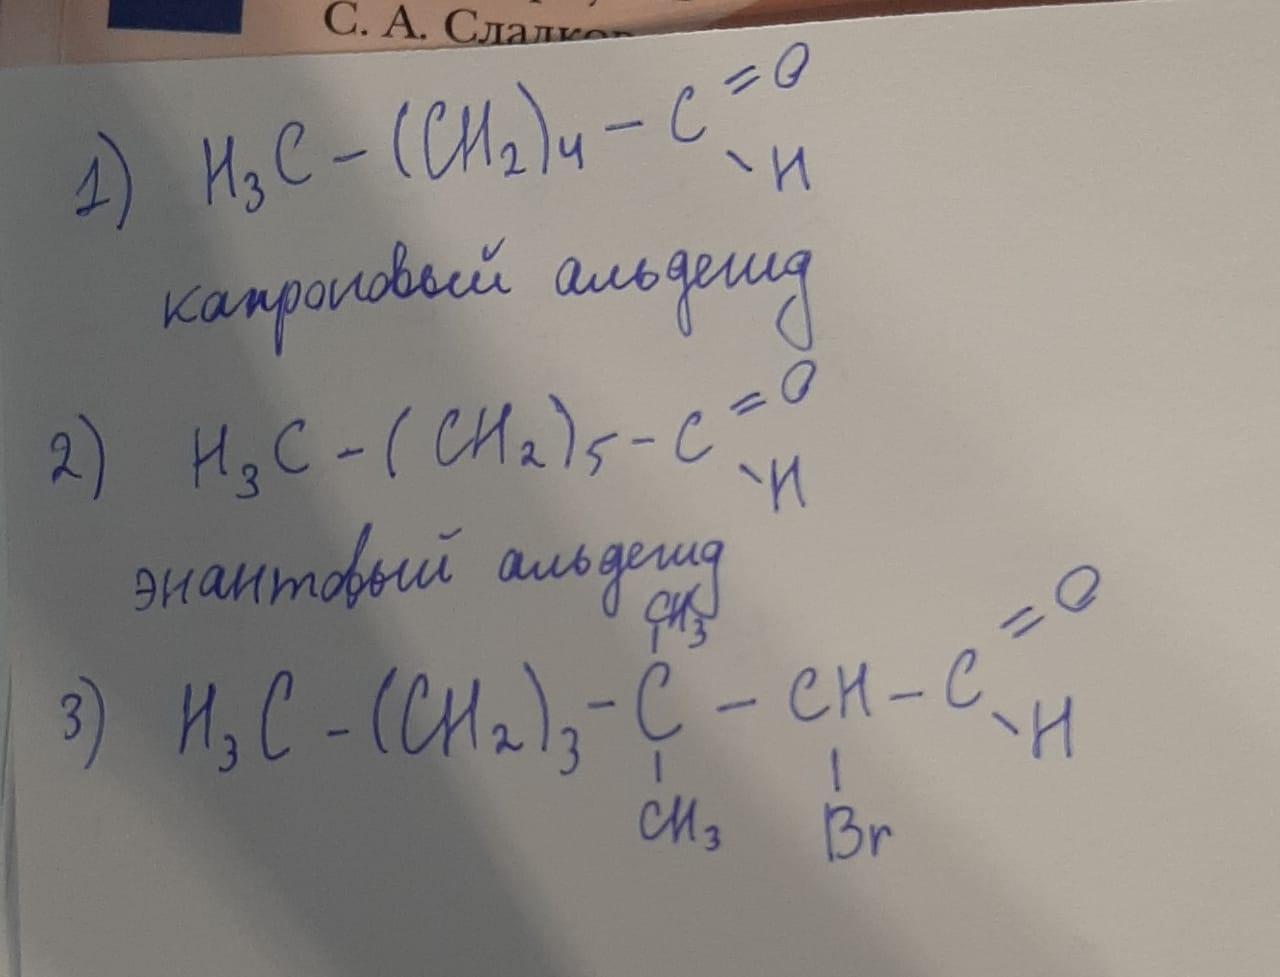 С. А. Сладков
1) H₃C – (CH₂)₄ – C =O
\ H
капроновый альдегид
2) H₃C – (CH₂)₅ – C =O
\ H
энантовый альдегид
CH₃
|
3) H₃C – (CH₂)₃ – C – CH – C =O
| | \ H
CH₃ Br